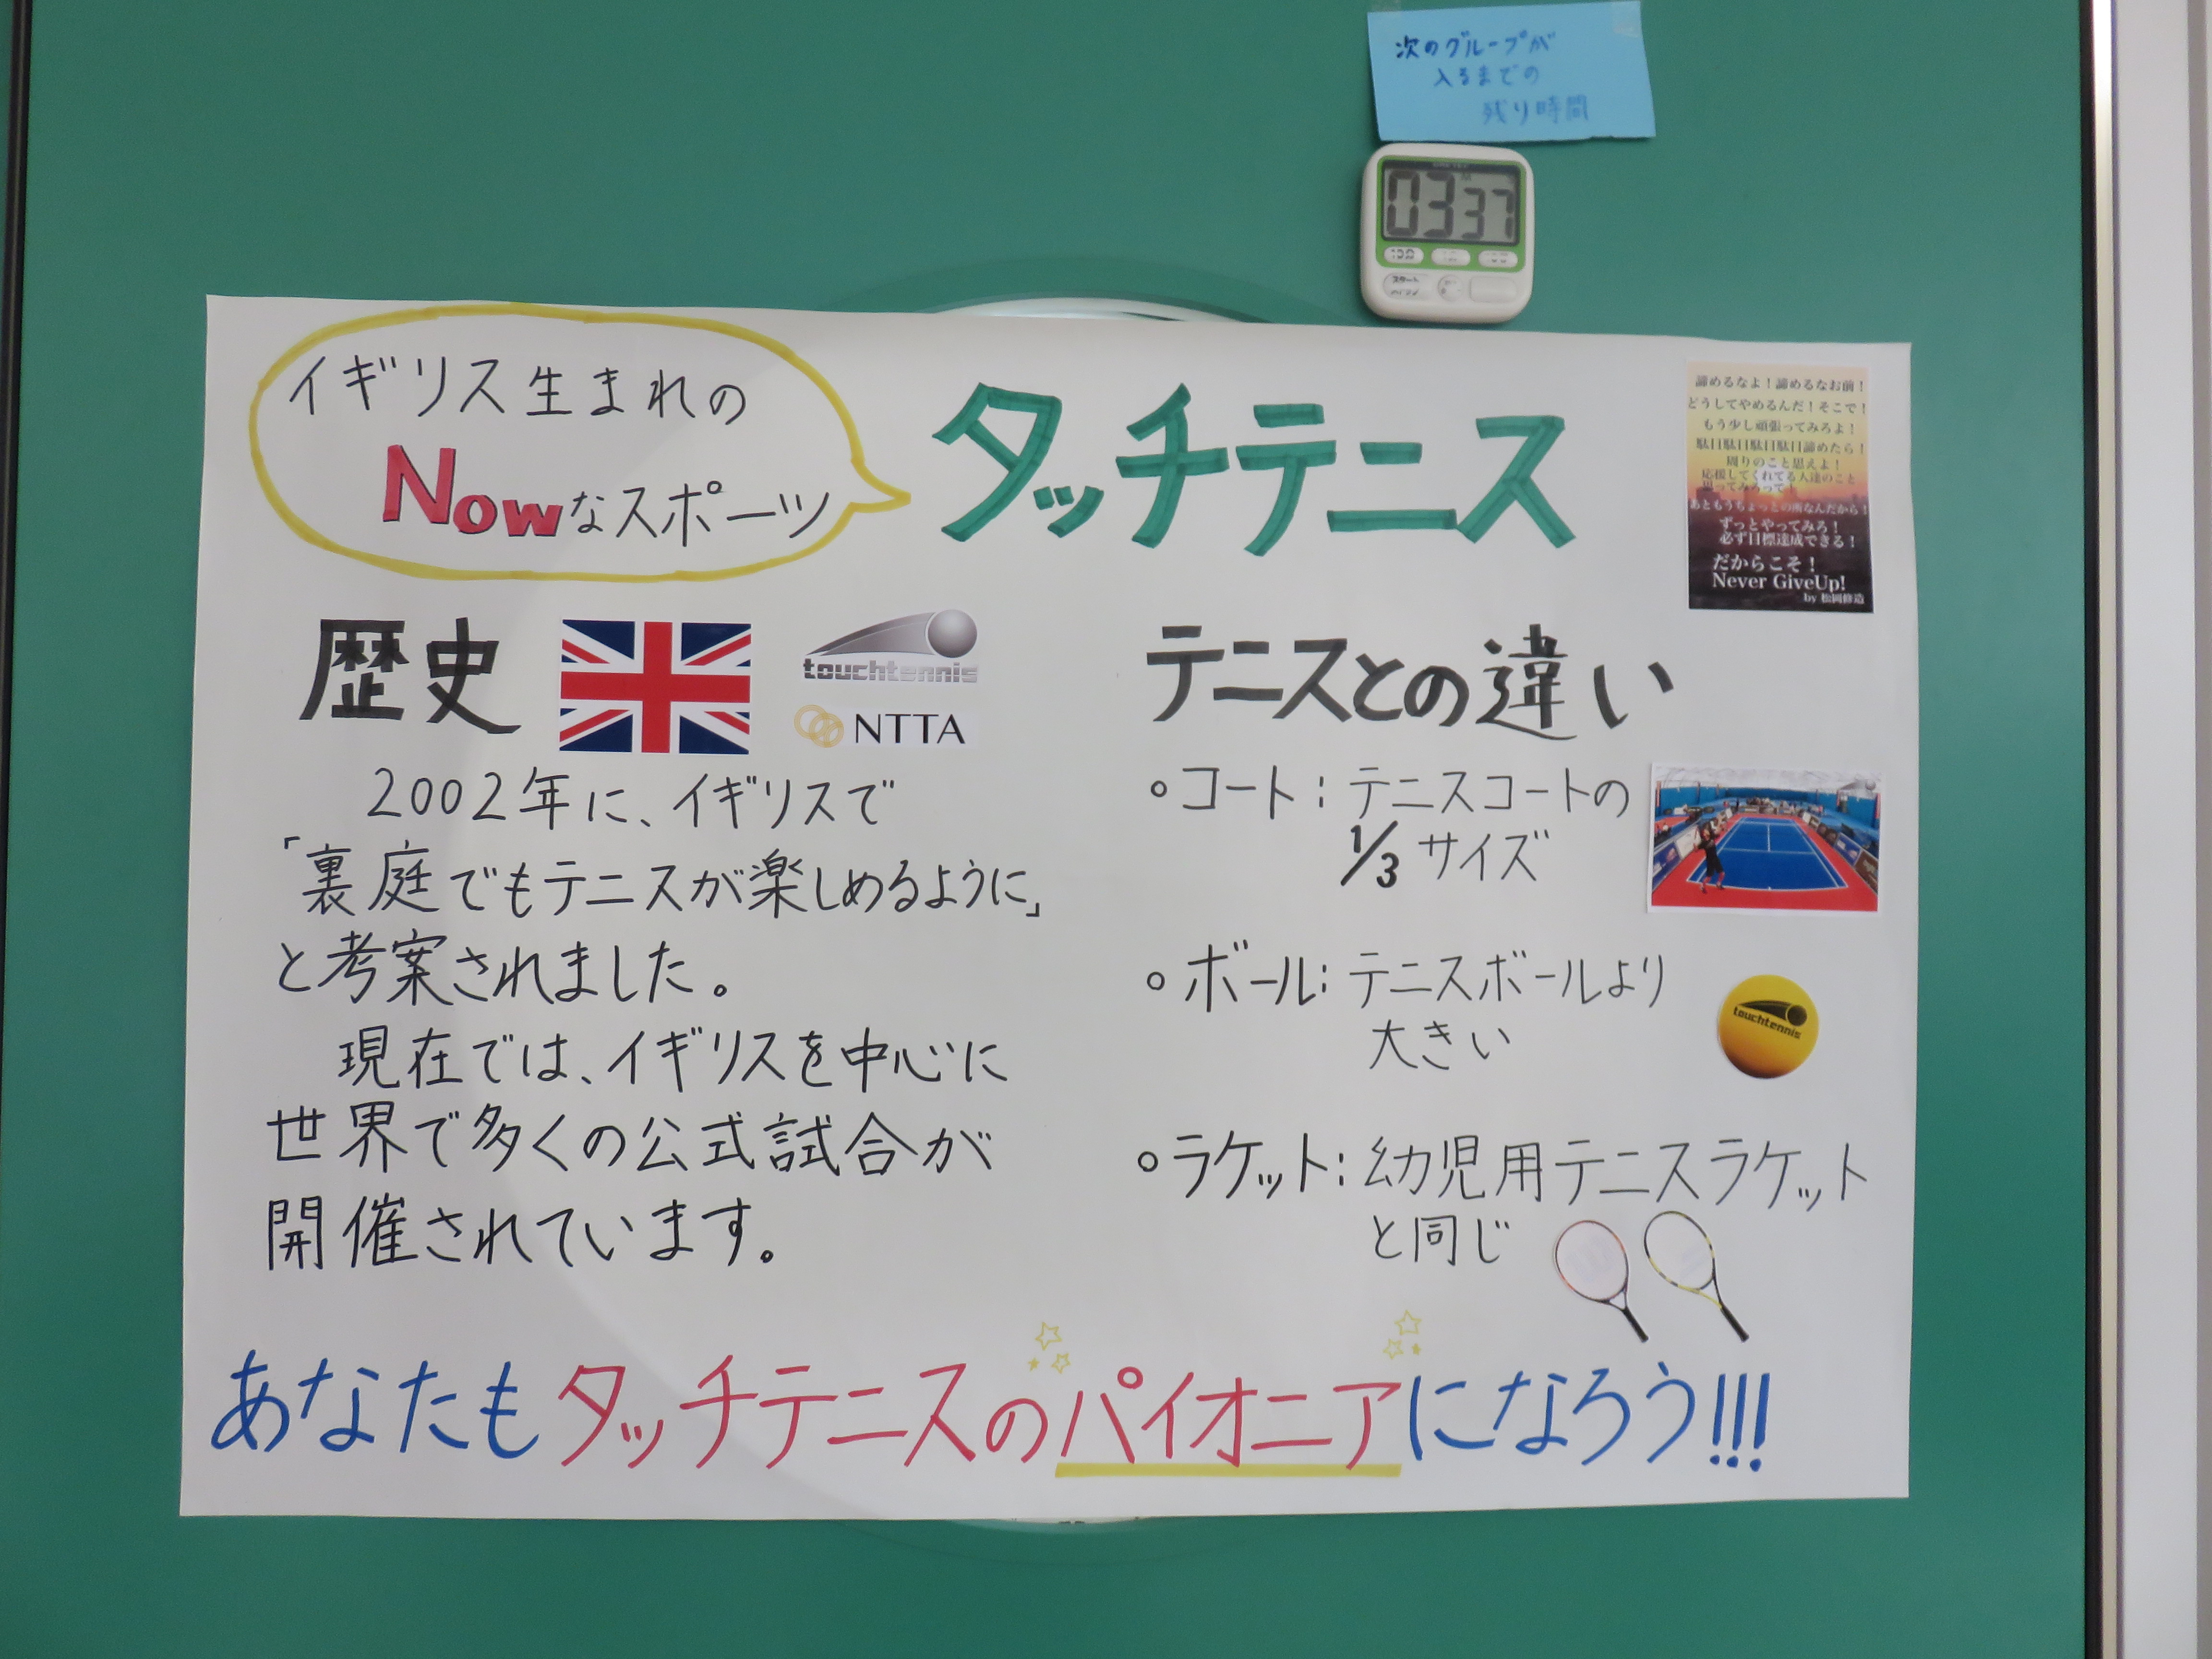 次のグループが
入るまでの
残り時間
03 37
スタート
イギリス生まれの
Nowなスポーツ
タッチテニス
諦めるなよ！諦めるなお前！
どうしてやめるんだ！そこで！
もう少し頑張ってみろよ！
駄目駄目駄目駄目諦めたら！
周りのこと思えよ！
応援してくれてる人達のこと
思ってみろって！
あともうちょっとの所なんだから！
ずっとやってみろ！
必ず目標達成できる！
だからこそ！
Never GiveUp!
by 松岡修造
歴史
touchtennis
NTTA
2002年に、イギリスで
「裏庭でもテニスが楽しめるように」
と考案されました。
現在では、イギリスを中心に
世界で多くの公式試合が
開催されています。
テニスとの違い
○コート：テニスコートの
1/3サイズ
○ボール：テニスボールより
大きい
touchtennis
○ラケット：幼児用テニスラケット
と同じ
あなたもタッチテニスのパイオニアになろう!!!